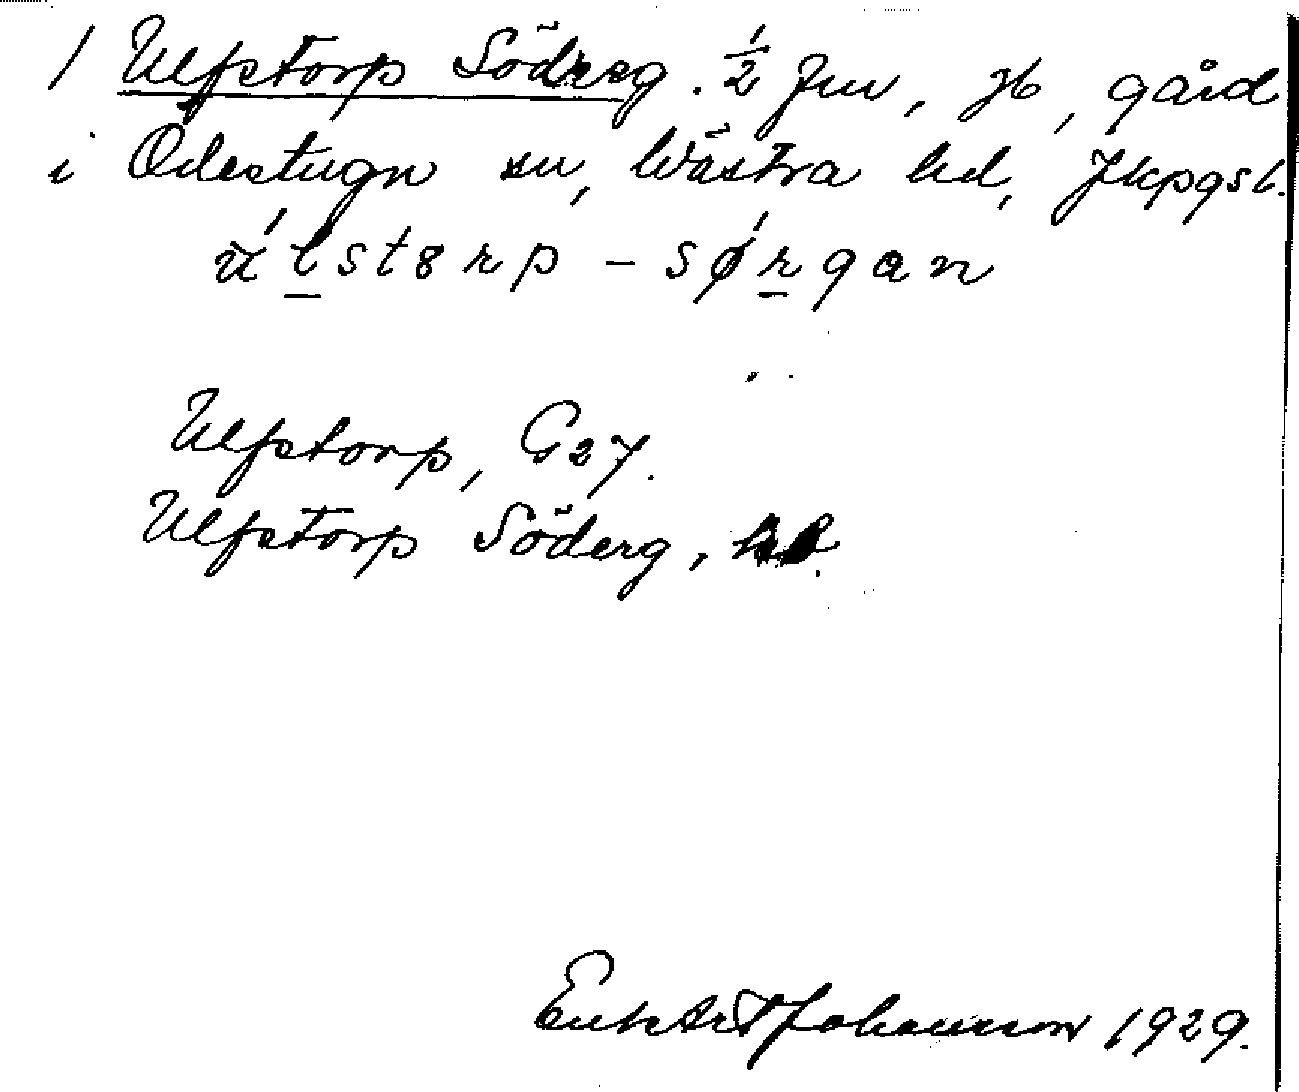 1 Ulfstorp Söderg. ½ frn, jb, gård
i Ödestugu sn, Västra hd, Jkpgs l.
úlstorp - sǿrgan
Ulfstorp, G27.
Ulfstorp Söderg,
Johansson 1929.